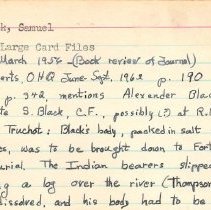 k, Samuel
Large Card Files
March 1956 - (Book review of Journal)
erts, OHQ June-Sept, 1962 p. 190
p. 342, mentions Alexander Blac
te S. Black, C.F., possibly (?) at R.
Truchot: Black's body, packed in salt
es, was to be brought down to Fort
urial. The Indian bearers slipped
g a log over the river (Thompson
dissolved, and his body had to be